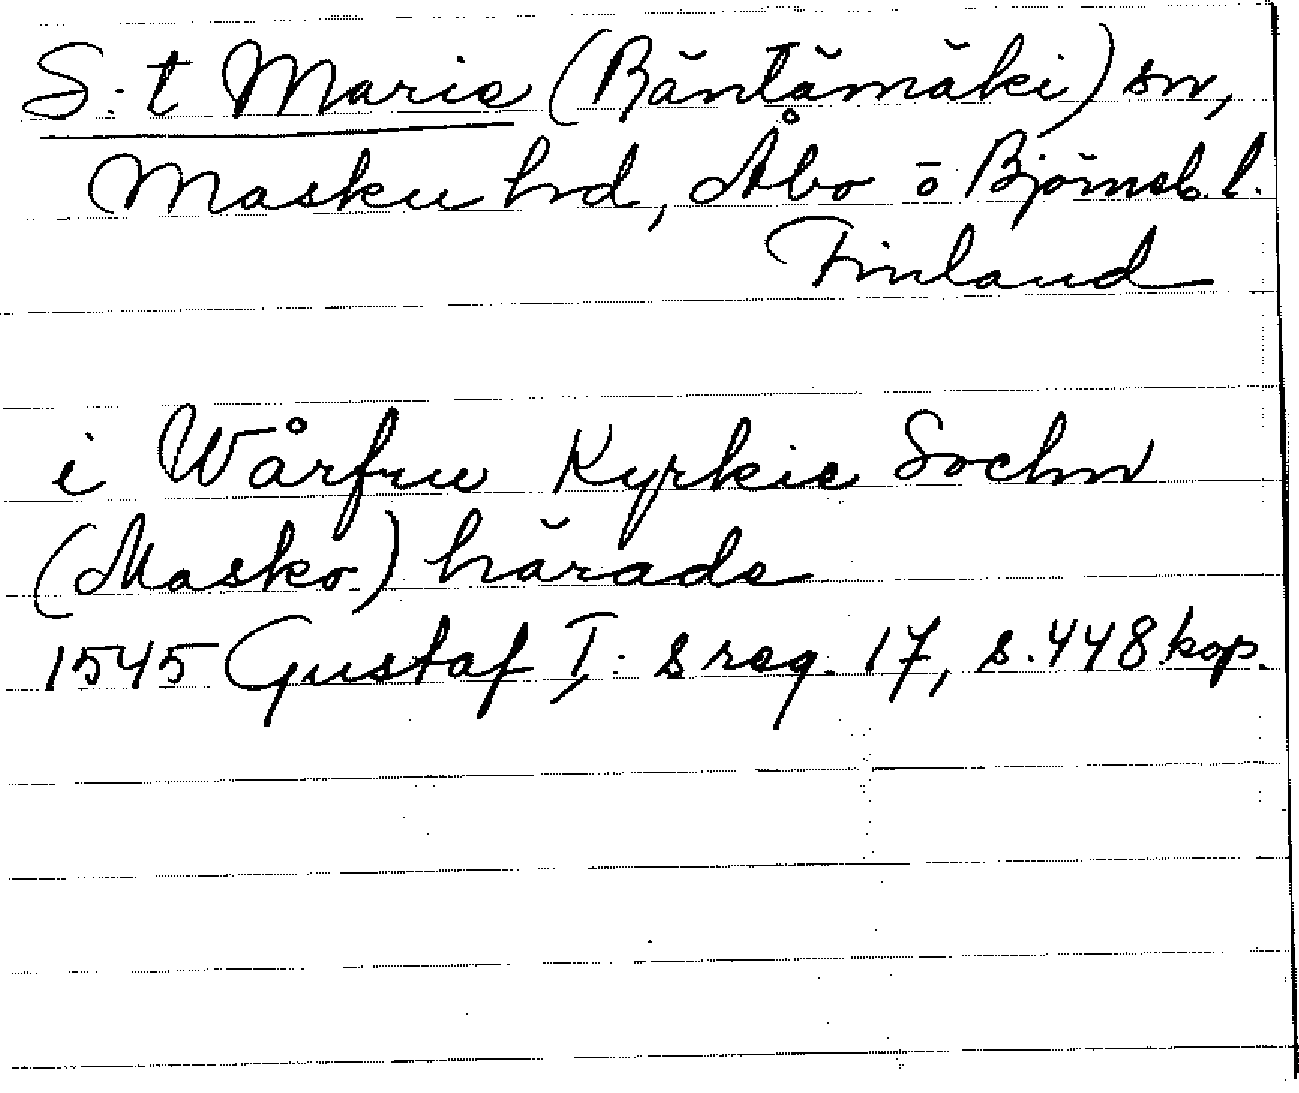 S:t Marie (Räntämäki) sn,
Masku hd, Åbo o Björneb. l.
Finland
i Wårfrw Kyrkie Sochn
(Masko) härade
1545 Gustaf I:s reg. 17, s. 448 kop.